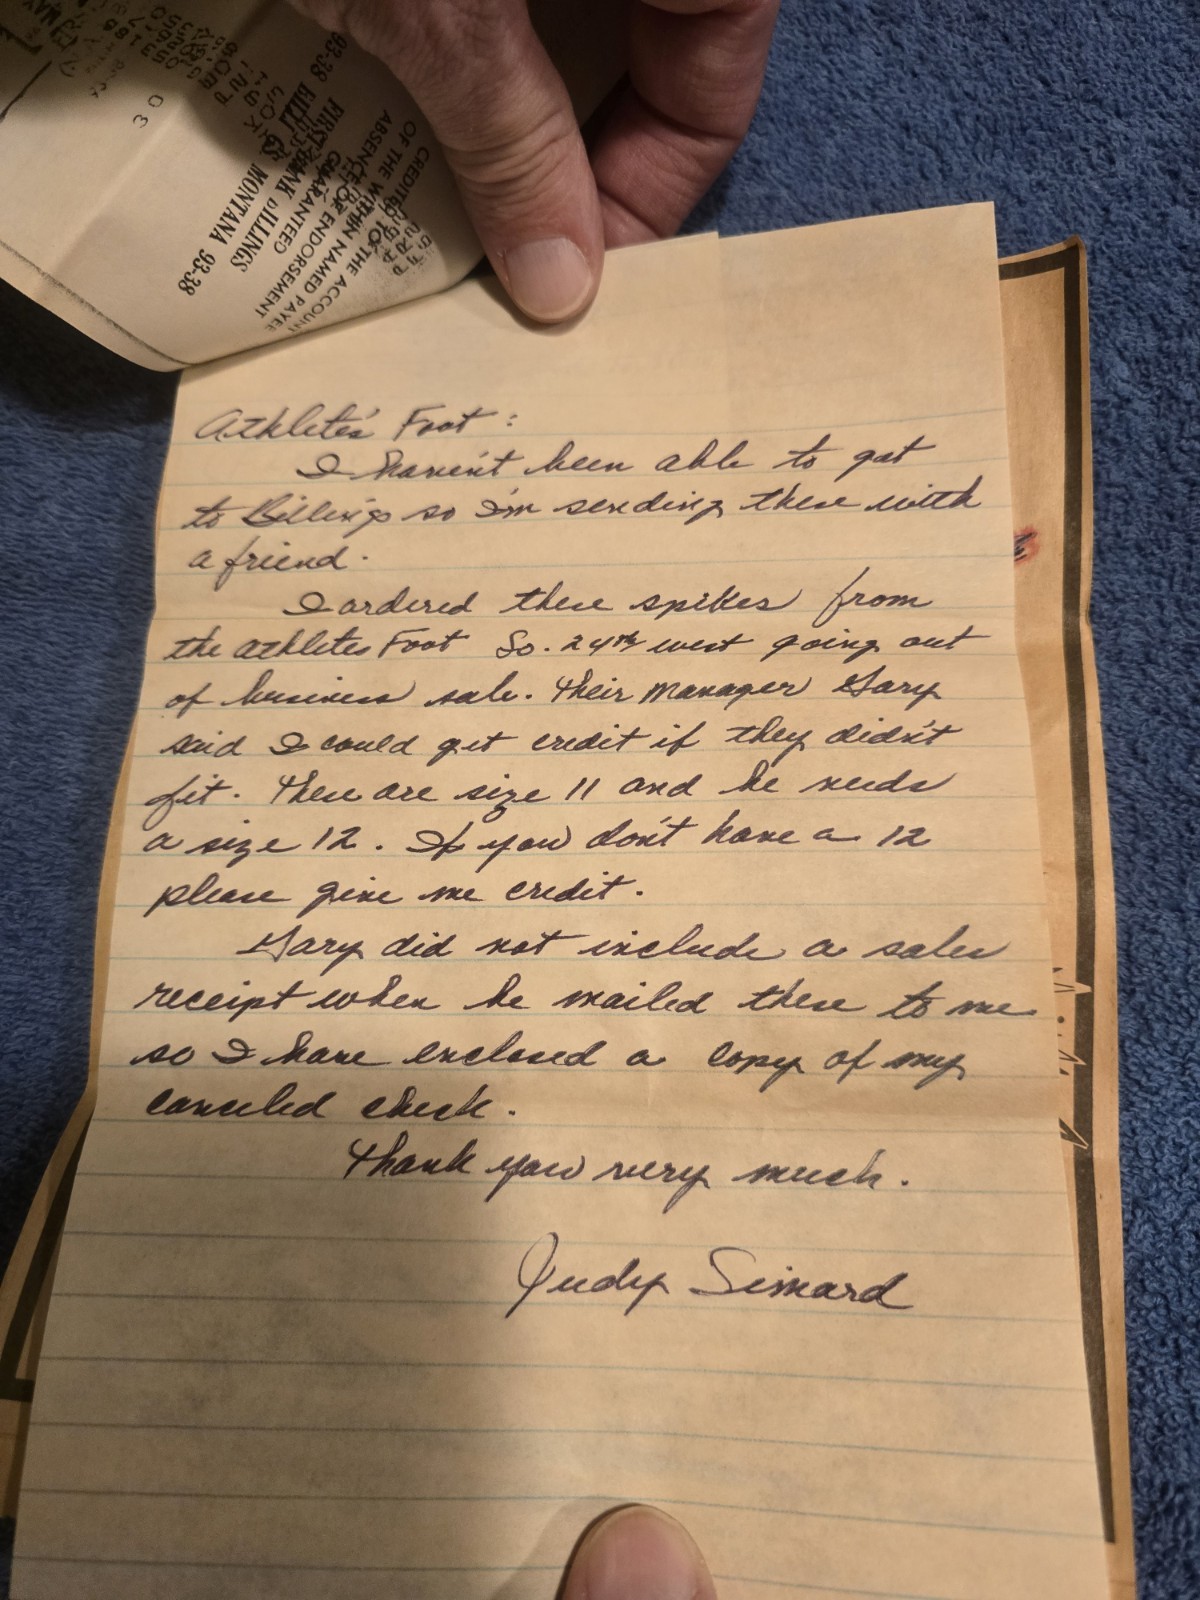 30
93-38
FIRST BANK BILLINGS
BILLINGS MONTANA 93-38
GUARANTEED
ABSENCE OF ENDORSEMENT
OF THE WITHIN NAMED PAYEE
CREDITED TO THE ACCOUNT
Athlete's Foot:
I haven't been able to get
to Billings so I'm sending these with
a friend.
I ordered these spikes from
the Athletes Foot So. 24th west going out
of business sale. Their manager Gary
said I could get credit if they didn't
fit. These are size 11 and he needs
a size 12. If you don't have a 12
please give me credit.
Gary did not include a sales
receipt when he mailed these to me
so I have enclosed a copy of my
canceled check.
Thank you very much.
Judy Simard